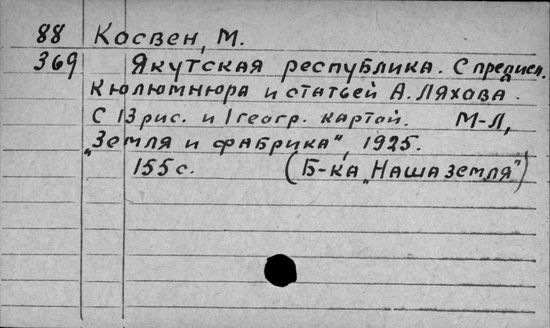 88 Косвен, М.
369 Якутская республика. С предисл.
Кюлюмнюра и статьей А. Ляхова.
С 13 рис. и 1 геогр. картой. М-Л,
„Земля и фабрика", 1925.
155 с. (Б-ка „Наша земля")